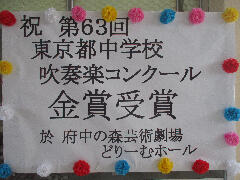 祝 第63回
東京都中学校
吹奏楽コンクール
金賞受賞
於 府中の森芸術劇場
どりーむホール